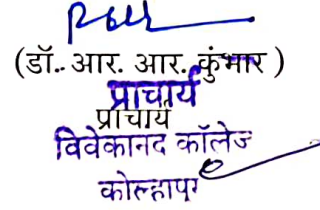 (डॉ. आर. आर. कुंभार )
प्राचार्य
प्राचार्य
विवेकानंद कॉलेज
कोल्हापुर